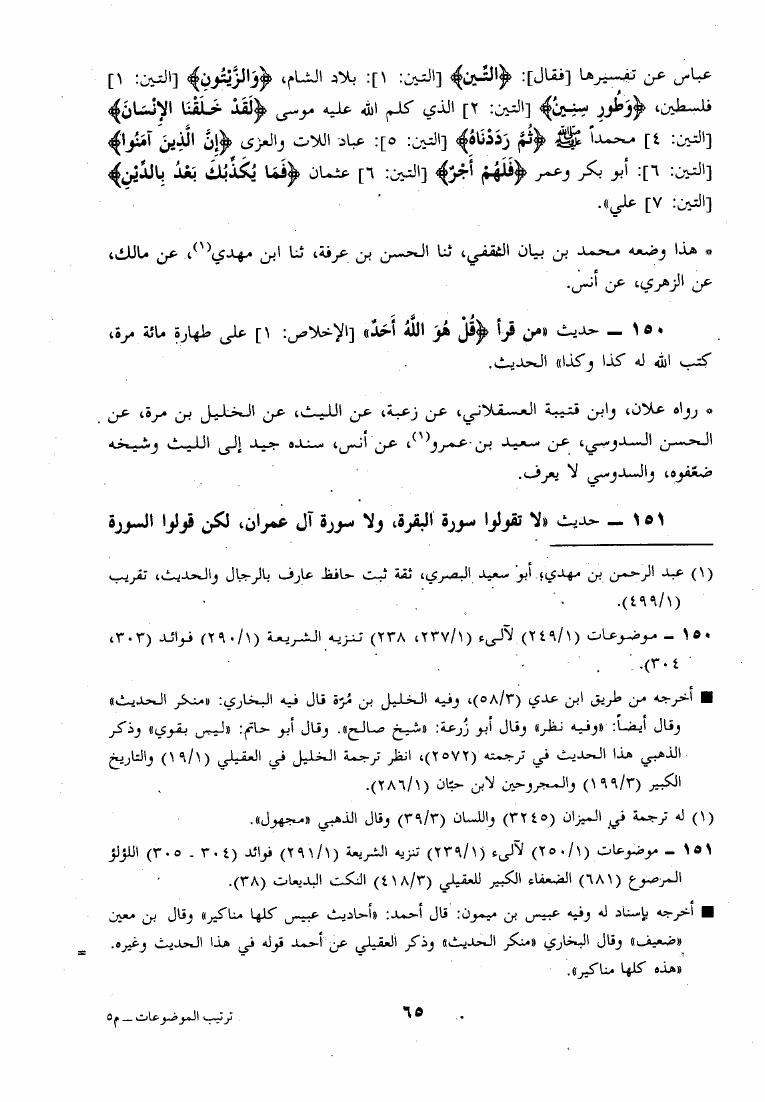 عباس عن تفسيرها [فقال]: ﴿التِّين﴾ [التين: ١]: بلاد الشام، ﴿وَالزَّيْتُونِ﴾ [التين: ١]
فلسطين، ﴿وَطُورِ سِنِينُ﴾ [التين: ٢] الذي كلم الله عليه موسى ﴿لَقَدْ خَلَقْنَا الإِنْسَانَ﴾
[التين: ٤] محمداً ﷺ ﴿ثُمَّ رَدَدْنَاهُ﴾ [التين: ٥]: عباد اللات والعزى ﴿إِنَّ الَّذِينَ آمَنُوا﴾
[التين: ٦]: أبو بكر وعمر ﴿فَلَهُمْ أَجْرٌ﴾ [التين: ٦] عثمان ﴿فَمَا يُكَذِّبُكَ بَعْدُ بِالدِّيْنِ﴾
[التين: ٧] علي».
* هذا وضعه محمد بن بيان الثقفي، ثنا الحسن بن عرفة، ثنا ابن مهدي(١)، عن مالك،
عن الزهري، عن أنس.
١٥٠ ــ حديث «من قرأ ﴿قُلْ هُوَ اللَّهُ أَحَدٌ﴾ [الإخلاص: ١] على طهارة مائة مرة،
كتب الله له كذا وكذا» الحديث.
* رواه علان، وابن قتيبة العسقلاني، عن زعبة، عن الليث، عن الخليل بن مرة، عن
الحسن السدوسي، عن سعيد بن عمرو(١)، عن أنس، سنده جيد إلى الليث وشيخه
ضعّفوه، والسدوسي لا يعرف.
١٥١ ــ حديث «لا تقولوا سورة البقرة، ولا سورة آل عمران، لكن قولوا السورة
(١) عبد الرحمن بن مهدي، أبو سعيد البصري، ثقة ثبت حافظ عارف بالرجال والحديث، تقريب
(٤٩٩/١).
١٥٠ ــ موضوعات (٢٤٩/١) لآلىء (٢٣٧/١، ٢٣٨) تنزيه الشريعة (٢٩٠/١) فوائد (٣٠٣،
٣٠٤).
■ أخرجه من طريق ابن عدي (٥٨/٣)، وفيه الخليل بن مُرّة قال فيه البخاري: «منكر الحديث»
وقال أيضاً: «وفيه نظر» وقال أبو زُرعة: «شيخ صالح». وقال أبو حاتم: «ليس بقوي» وذكر
الذهبي هذا الحديث في ترجمته (٢٥٧٢)، انظر ترجمة الخليل في العقيلي (١٩/١) والتاريخ
الكبير (١٩٩/٣) والمجروحين لابن حبّان (٢٨٦/١).
(١) له ترجمة في الميزان (٣٢٤٥) واللسان (٣٩/٣) وقال الذهبي «مجهول».
١٥١ ــ موضوعات (٢٥٠/١) لآلىء (٢٣٩/١) تنزيه الشريعة (٢٩١/١) فوائد (٣٠٤ ـ ٣٠٥) اللؤلؤ
المرصوع (٦٨١) الضعفاء الكبير للعقيلي (٤١٨/٣) النكت البديعات (٣٨).
■ أخرجه بإسناد له وفيه عبيس بن ميمون: قال أحمد: «أحاديث عبيس كلها مناكير» وقال بن معين
«ضعيف» وقال البخاري «منكر الحديث» وذكر العقيلي عن أحمد قوله في هذا الحديث وغيره.
«هذه كلها مناكير». =
٦٥
ترتيب الموضوعات ــ م٥